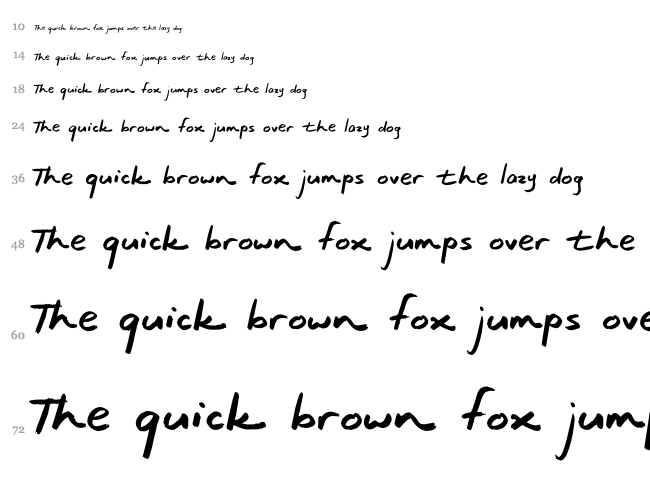 10 The quick brown fox jumps over the lazy dog
14 The quick brown fox jumps over the lazy dog
18 The quick brown fox jumps over the lazy dog
24 The quick brown fox jumps over the lazy dog
36 The quick brown fox jumps over the lazy dog
48 The quick brown fox jumps over the
60 The quick brown fox jumps ove
72 The quick brown fox jump